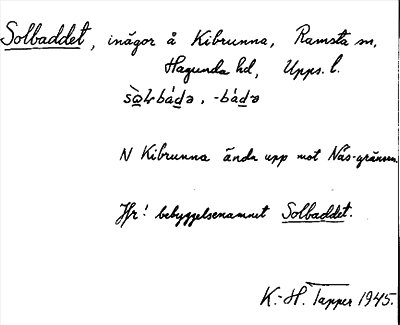 Solbaddet, inägor å Kibrunna, Ramsta sn,
Hagunda hd, Upps. l.
sò̲ɫbáḏə, -báḏə
N Kibrunna ända upp mot Näs-gränsen.
Jfr! bebyggelsenamnet Solbaddet.
K.-H. Tapper 1945.